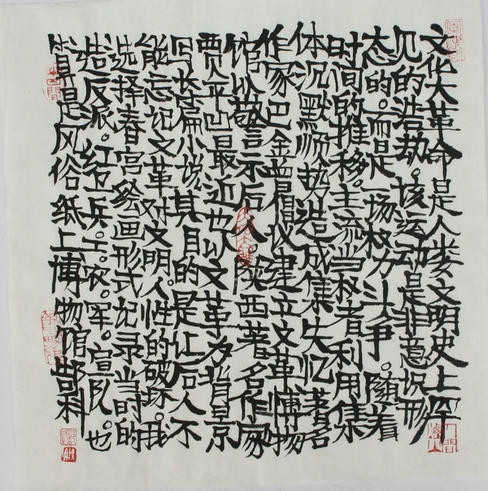 文化大革命是人类文明史上罕
见的浩劫。该运动是非意识形
态的。而是一场权力斗争。随着
时间的推移。主流当权者利用集
体沉默顺势造成集失忆著名
作家巴金曾倡议建立文革博物
馆以警示后人。陕西著名作家
贾平凹最近也以文革为背景
写长篇小说其目的是让后人不
能忘记文革对文明。人性的破坏。我
选择春宫绘画形式记录当时的
造反派。红卫兵。工。农。军。宣队。也
是风俗纸上博物馆